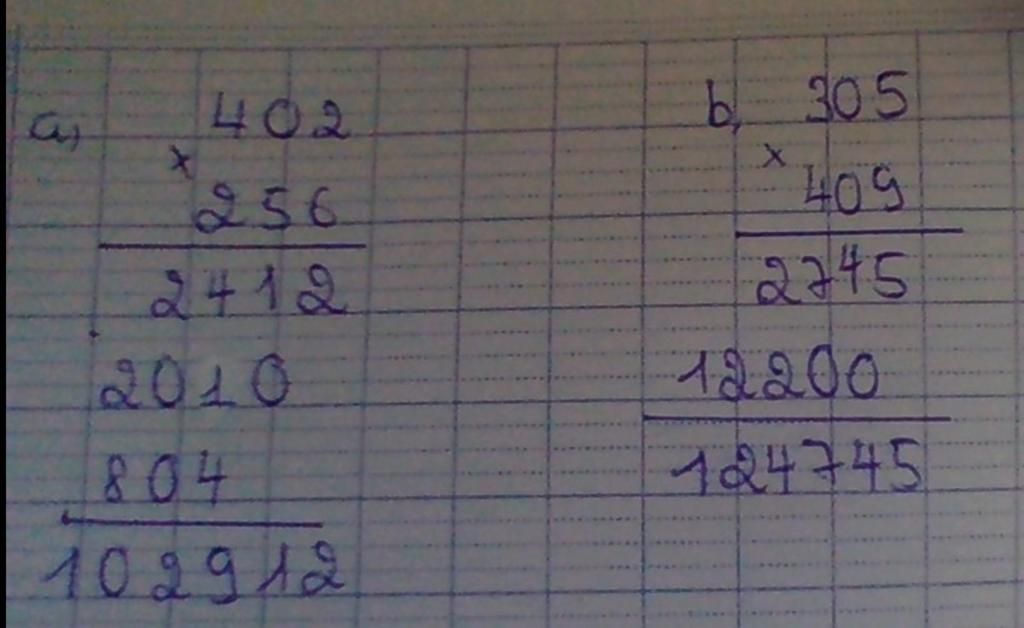 a, 402
x
256
2412
2010
804
102912
b, 305
x
409
2745
12200
124745